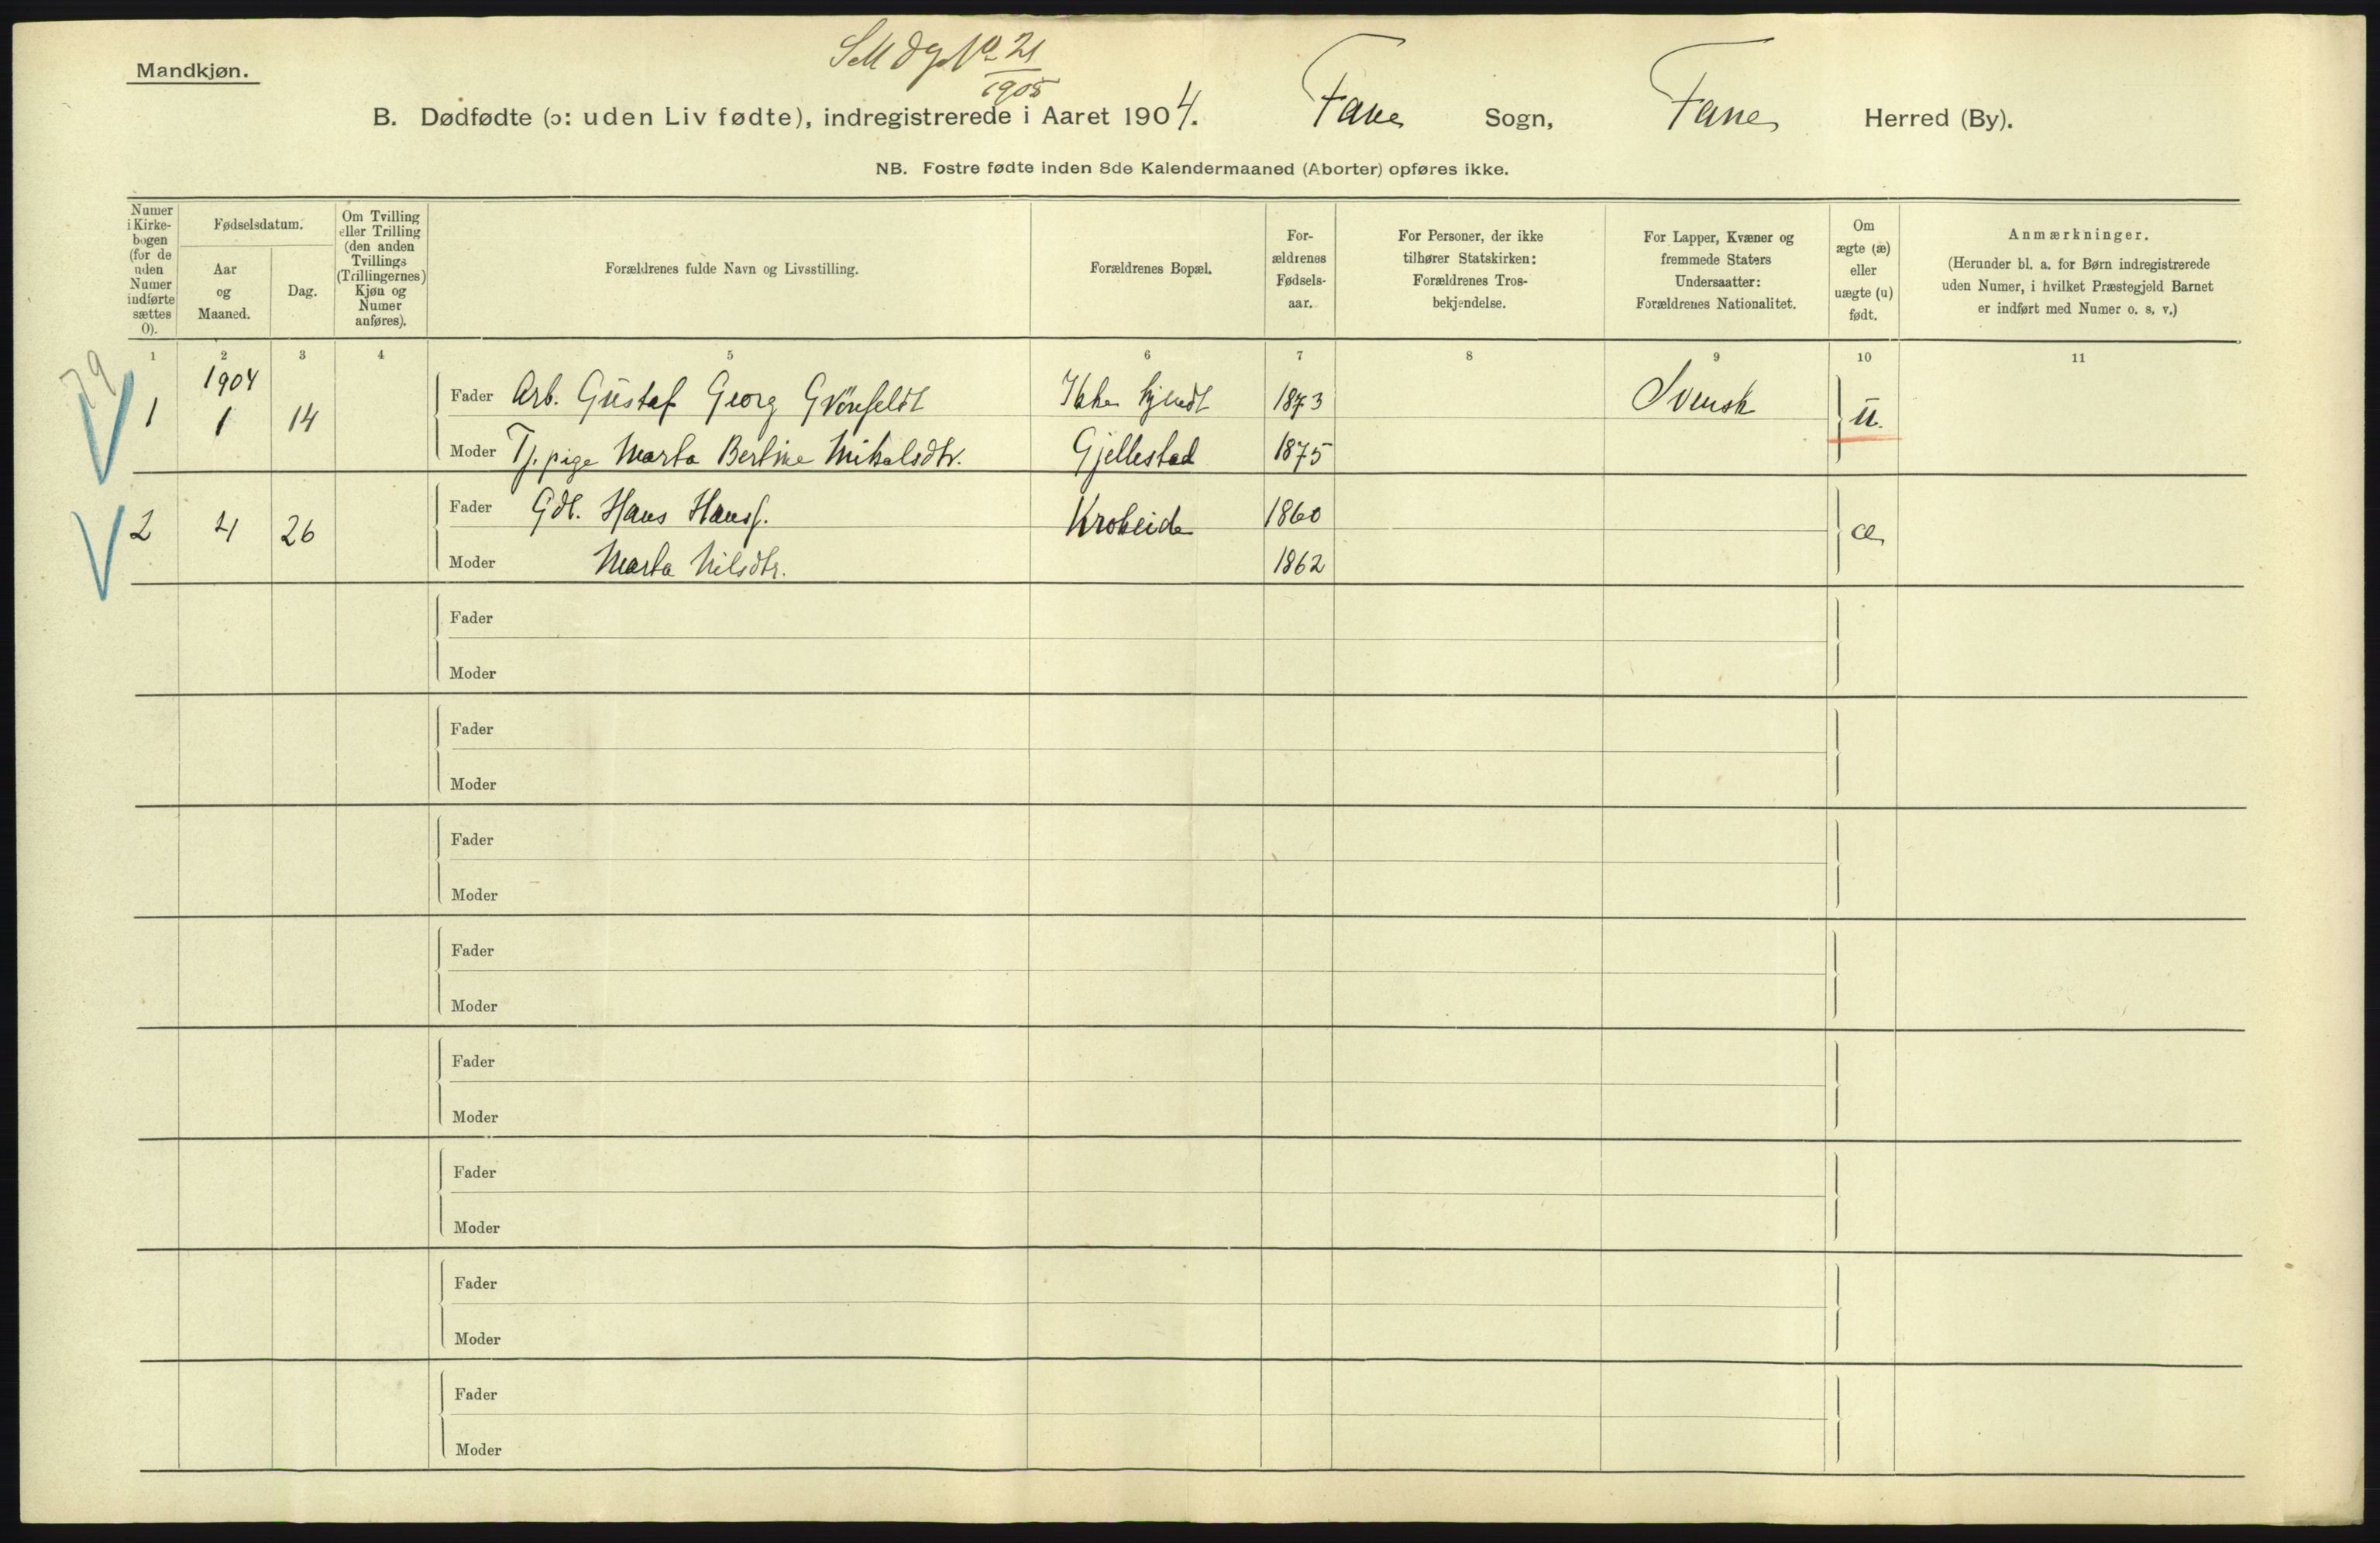 Mandkjøn.
No 21
1905
B. Dødfødte (ɔ: uden Liv fødte), indregistrerede i Aaret 1904. Fane Sogn, Fane Herred (By).
NB. Fostre fødte inden 8de Kalendermaaned (Aborter) opføres ikke.
Numer i Kirke- bogen (for de uden Numer indførte sættes 0).
Fødselsdatum.
Aar og Maaned.
Dag.
Om Tvilling eller Trilling (den anden Tvillings (Trillingernes) Kjøn og Numer anføres).
Forældrenes fulde Navn og Livsstilling.
Forældrenes Bopæl.
For- ældrenes Fødsels- aar.
For Personer, der ikke tilhører Statskirken: Forældrenes Tros- bekjendelse.
For Lapper, Kvæner og fremmede Staters Undersaatter: Forældrenes Nationalitet.
Om ægte (æ) eller uægte (u) født.
Anmærkninger.
(Herunder bl. a. for Børn indregistrerede uden Numer, i hvilket Præstegjeld Barnet er indført med Numer o. s. v.)
1 2 3 4 5 6 7 8 9 10 11
79
1904
1 1 14 Fader Arb. Gustaf Georg Grönfeldt Ikke kjendt 1873 Svensk u.
Moder Tj. pige Marta Bertine Mikalsdtr. Gjellestad 1875
2 4 26 Fader Gdb. Hans Hanss. Krokeide 1860 æ
Moder Marta Nilsdtr. 1862
Fader
Moder
Fader
Moder
Fader
Moder
Fader
Moder
Fader
Moder
Fader
Moder
Fader
Moder
Fader
Moder